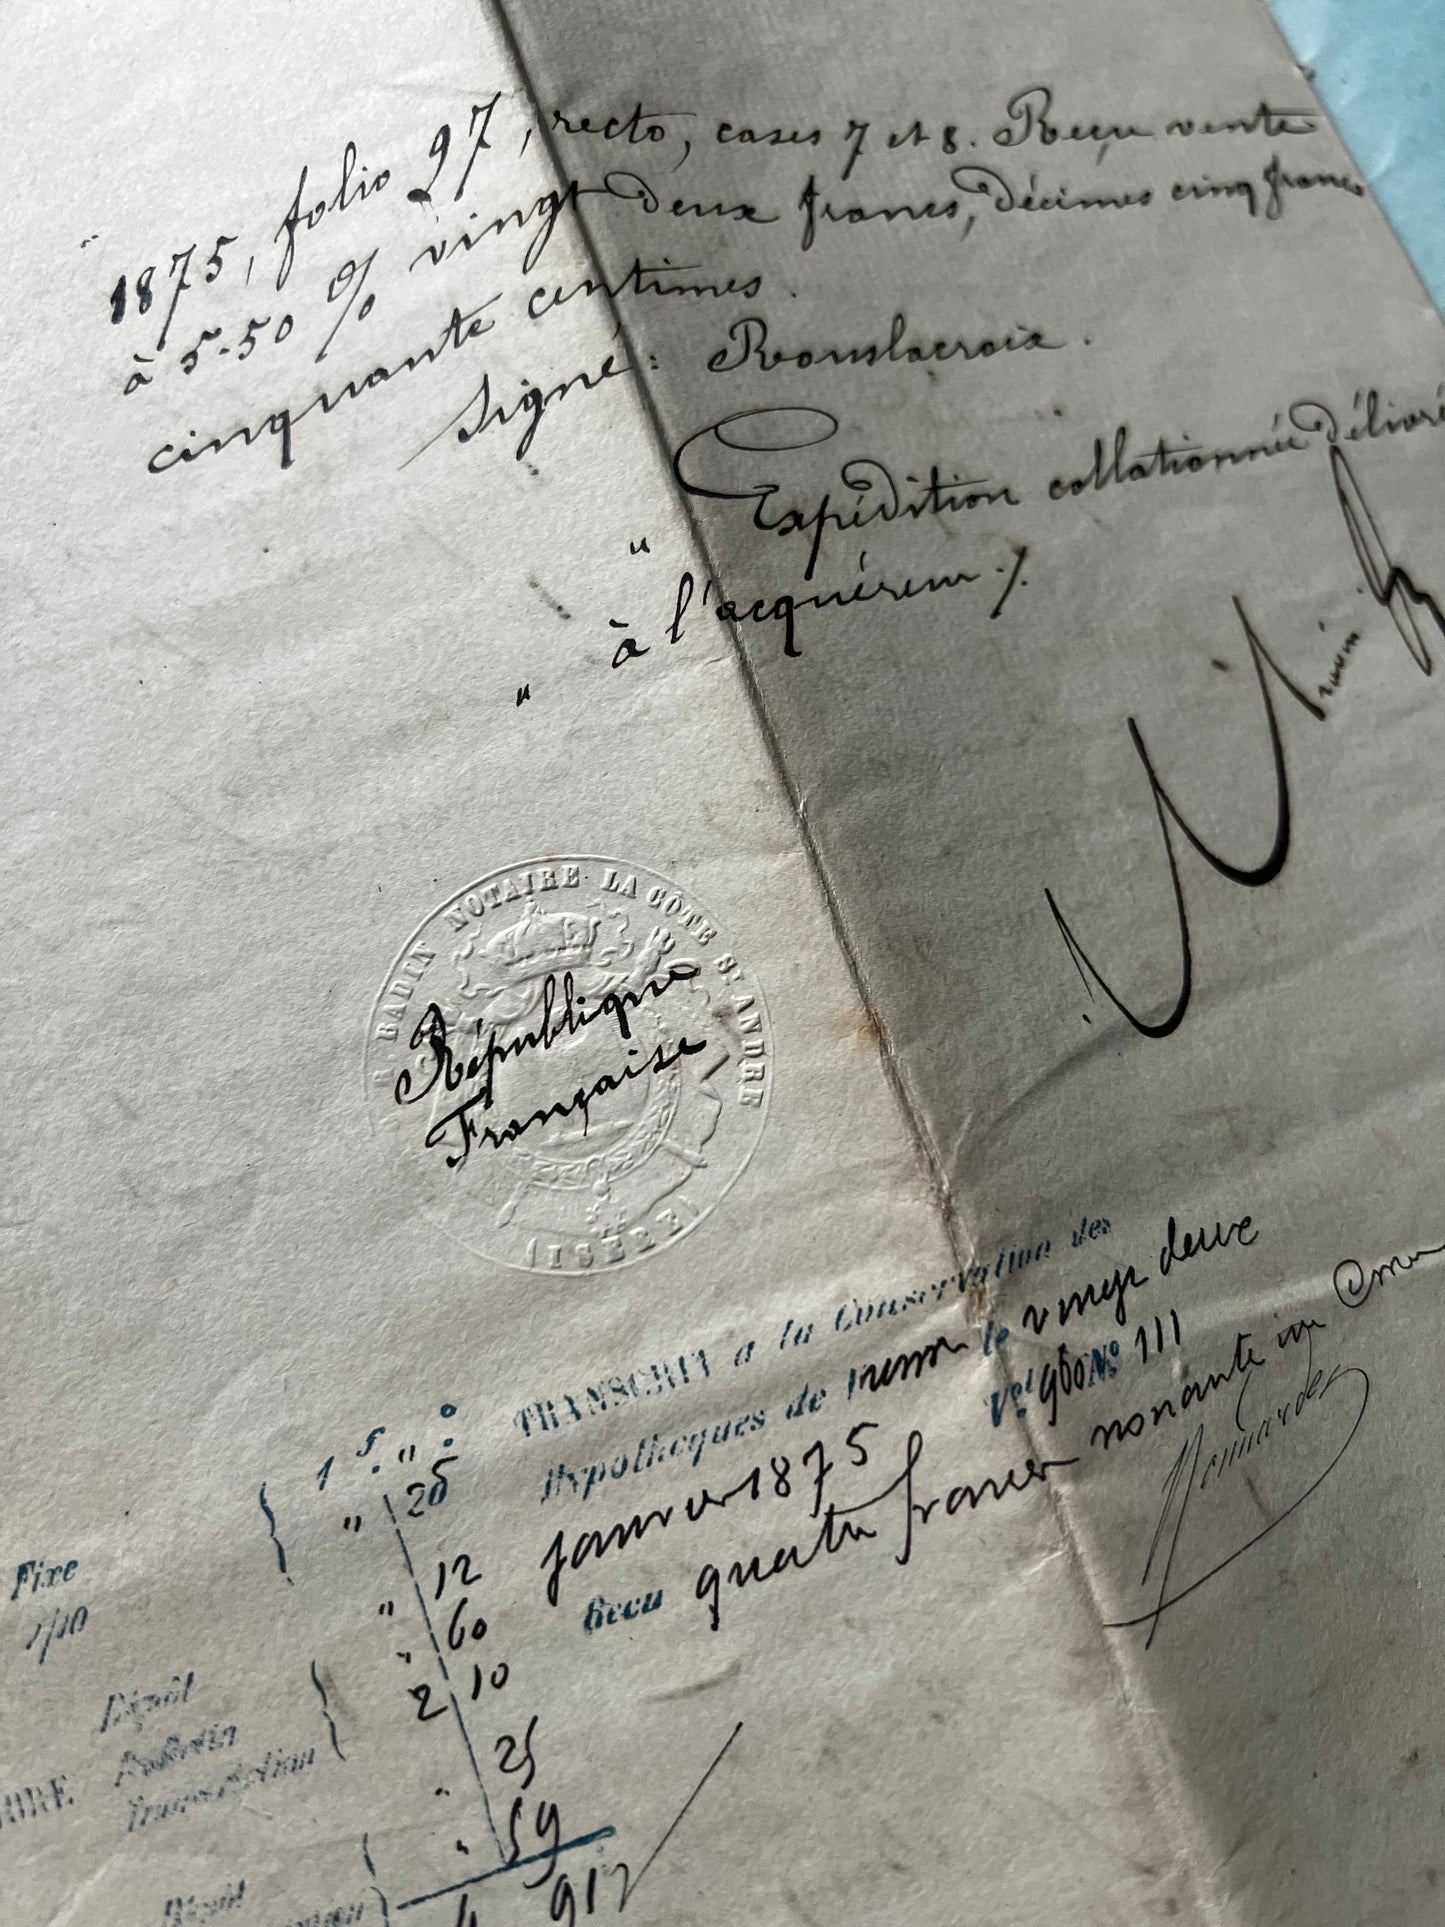 1875, folio 97, recto, cases 7 et 8. Reçu vente
à 5.50 % vingt deux francs, décimes cinq francs
cinquante centimes.
Signé: Rouslacroix.
Expédition collationnée délivrée
" à l'acquéreur ./.
"
BADIN NOTAIRE · LA CÔTE ST ANDRÉ
République
Française
(ISÈRE)
TRANSCRIT à la Conservation des
Hypothèques de le vingt deux
janvier 1875 Vol 960 No 111
Reçu quatre francs nonante
Fixe
1/10
1 f. "
" 25
" 12
" 60
2 10
" 25
" 59
4 91
Dépôt
Bulletin
Transcription
Dépôt